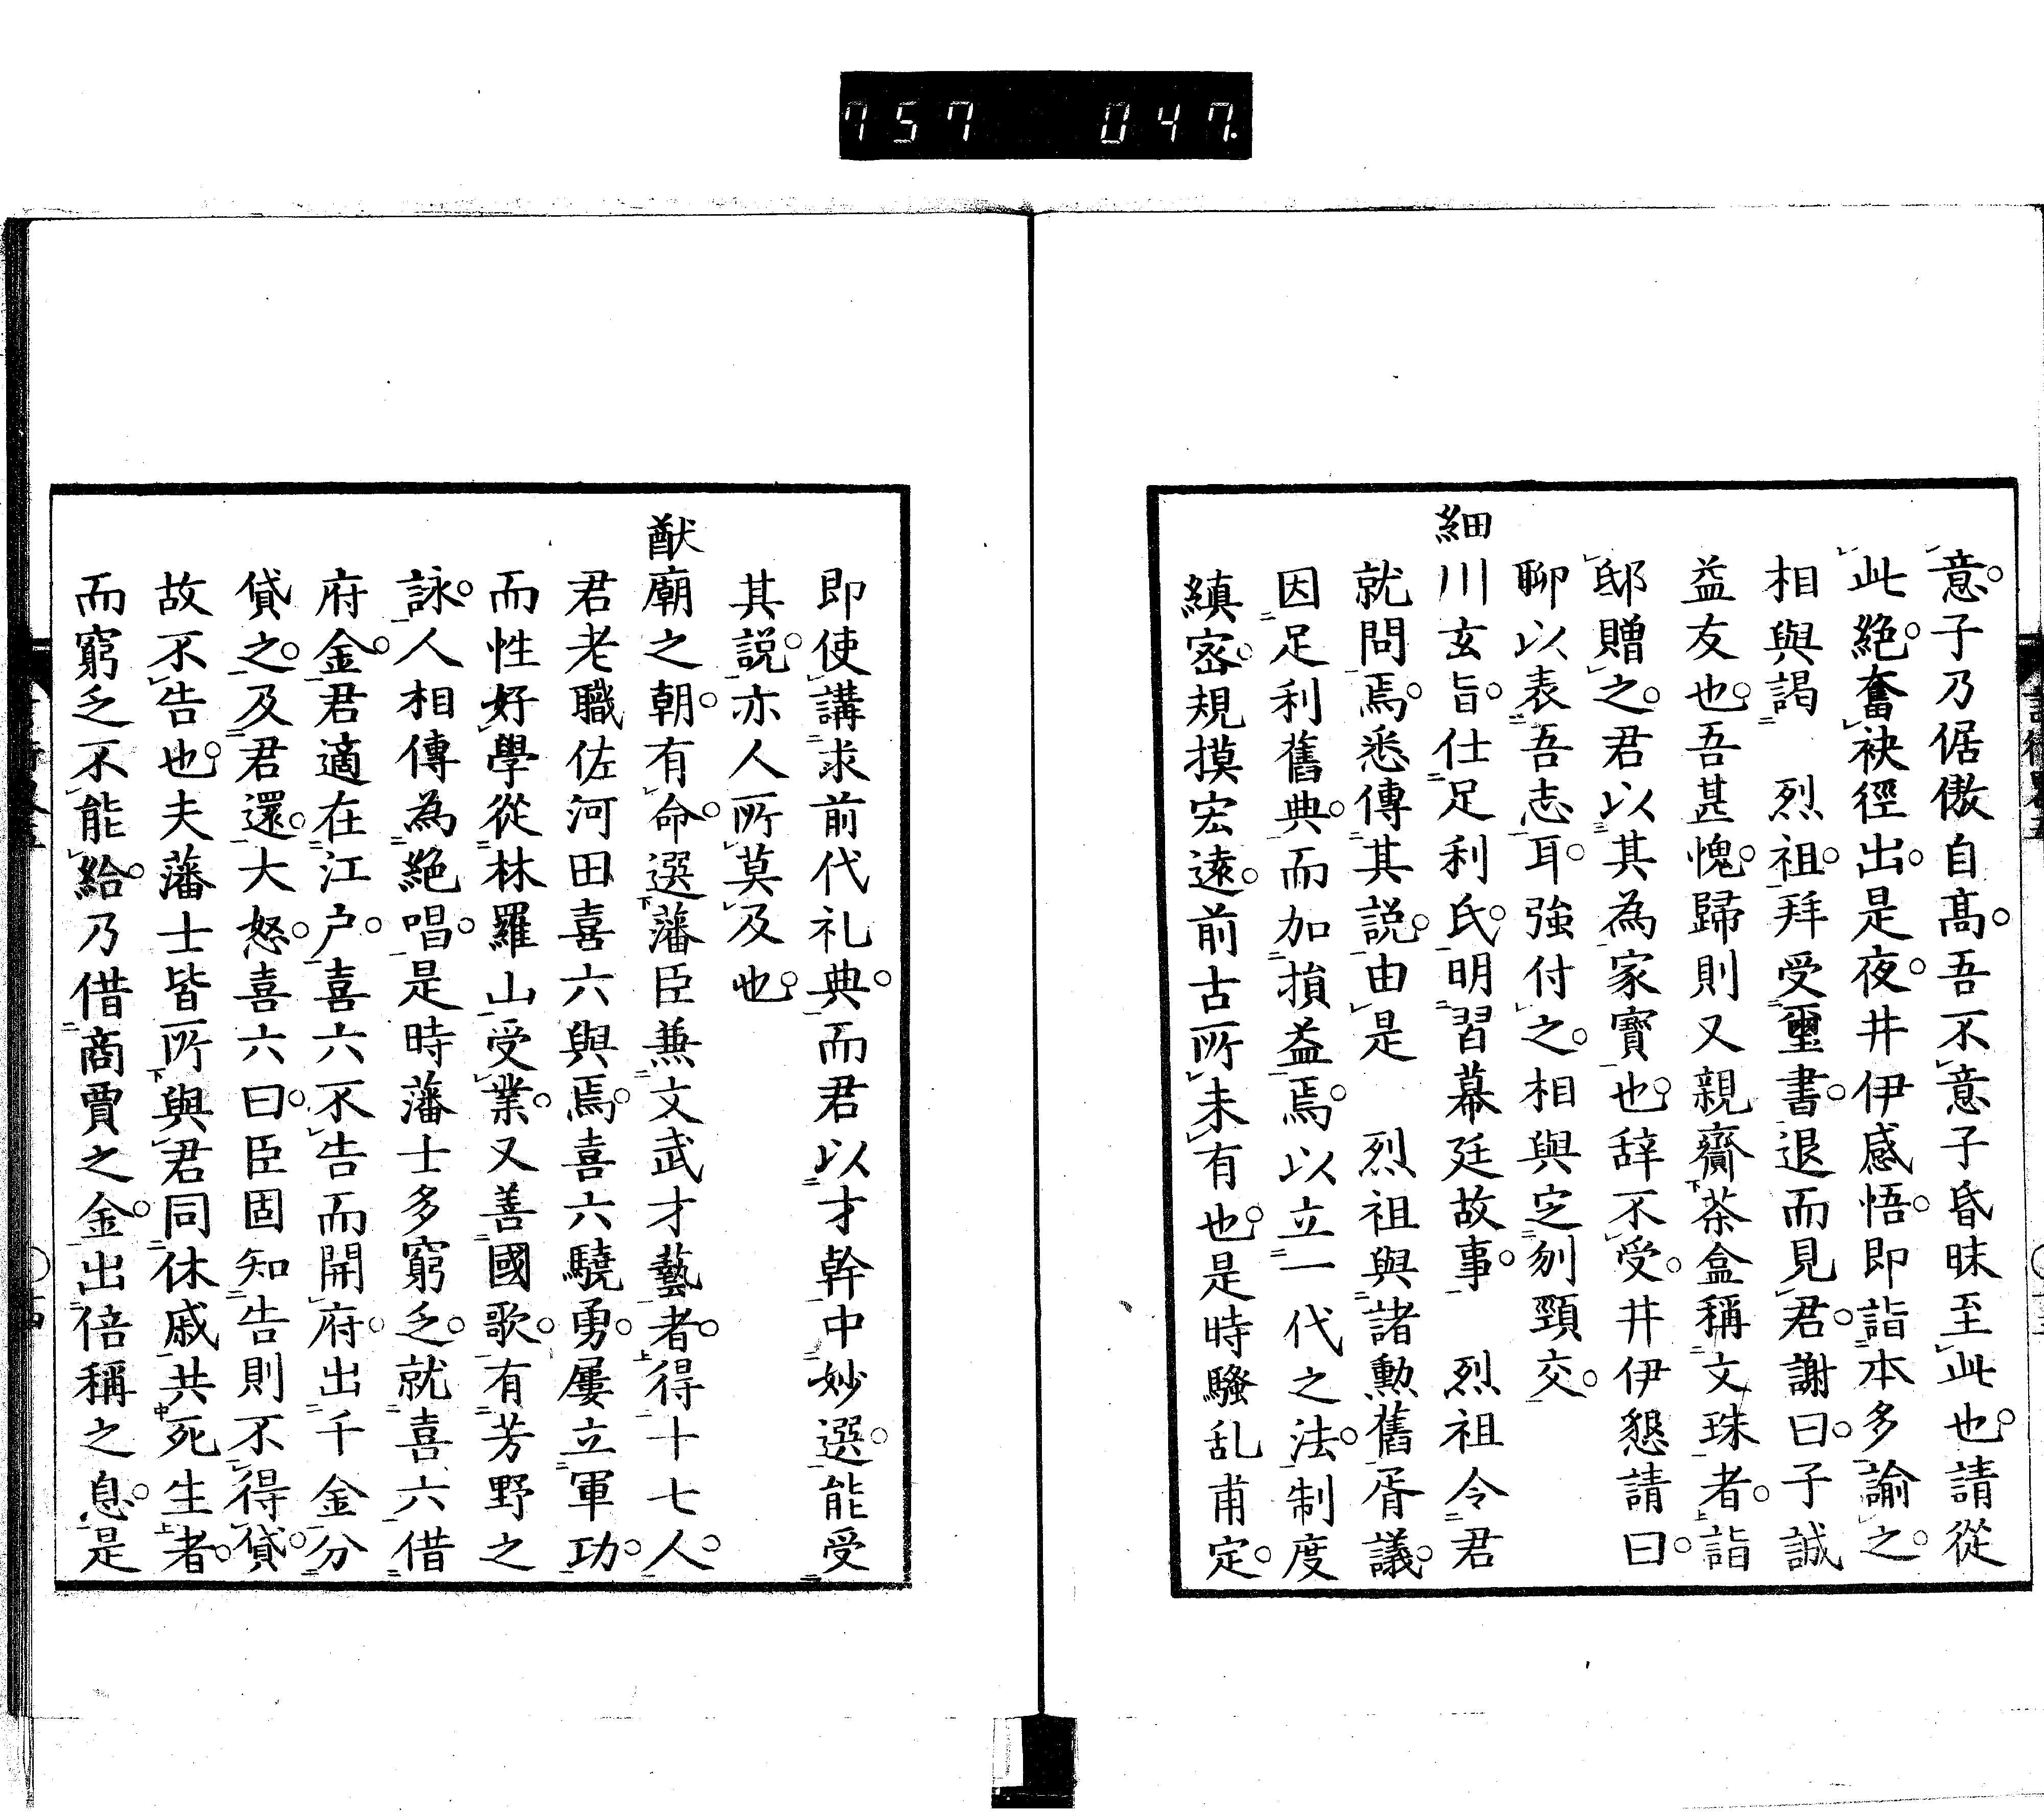 757 047.
意子乃倨傲自髙吾不意子昏昧至此也請從
此絶奮袂徑出是夜井伊感悟即詣本多諭之
相與謁　烈祖拜受璽書退而見君謝曰子誠
益友也吾甚愧歸則又親齎茶盒稱文珠者詣
邸贈之君以其為家寳也辞不受井伊懇請曰
聊以表吾志耳強付之相與定刎頸交
細川玄旨仕足利氏明習幕廷故事　烈祖令君
就問焉悉傳其説由是　烈祖與諸勲舊胥議
因足利舊典而加損益焉以立一代之法制度
縝宻規摸宏遠前古所未有也是時騒乱甫定
即使講求前代礼典而君以才幹中妙選能受
其説亦人所莫及也
猷廟之朝有命選藩臣兼文武才藝者得十七人
君老職佐河田喜六與焉喜六驍勇屢立軍功
而性好學從林羅山受業又善國歌有芳野之
詠人相傳為絶唱是時藩士多窮乏就喜六借
府金君適在江户喜六不告而開府出千金分
貸之及君還大怒喜六曰臣固知告則不得貸
故不告也夫藩士皆所與君同休戚共死生者
而窮乏不能給乃借商賈之金出倍稱之息是